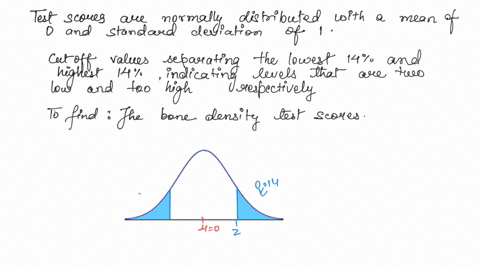 Test scores are normally distributed with a mean of
0 and standard deviation of 1.
Cutoff values separating the lowest 14% and
highest 14%, indicating levels that are two
low and too high respectively
To find : The bone density test scores.
0.14
μ=0
z